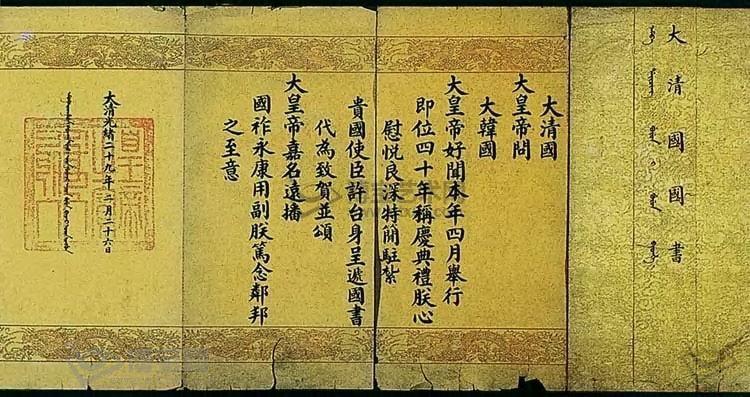 大清國國書
大清國
大皇帝問
大韓國
大皇帝好聞本年四月舉行
即位四十年稱慶典禮朕心
慰悅良深特簡駐紮
貴國使臣許台身呈遞國書
代為致賀並頌
大皇帝嘉名遠播
國祚永康用副朕篤念鄰邦
之至意
大清光緒二十九年二月二十六日